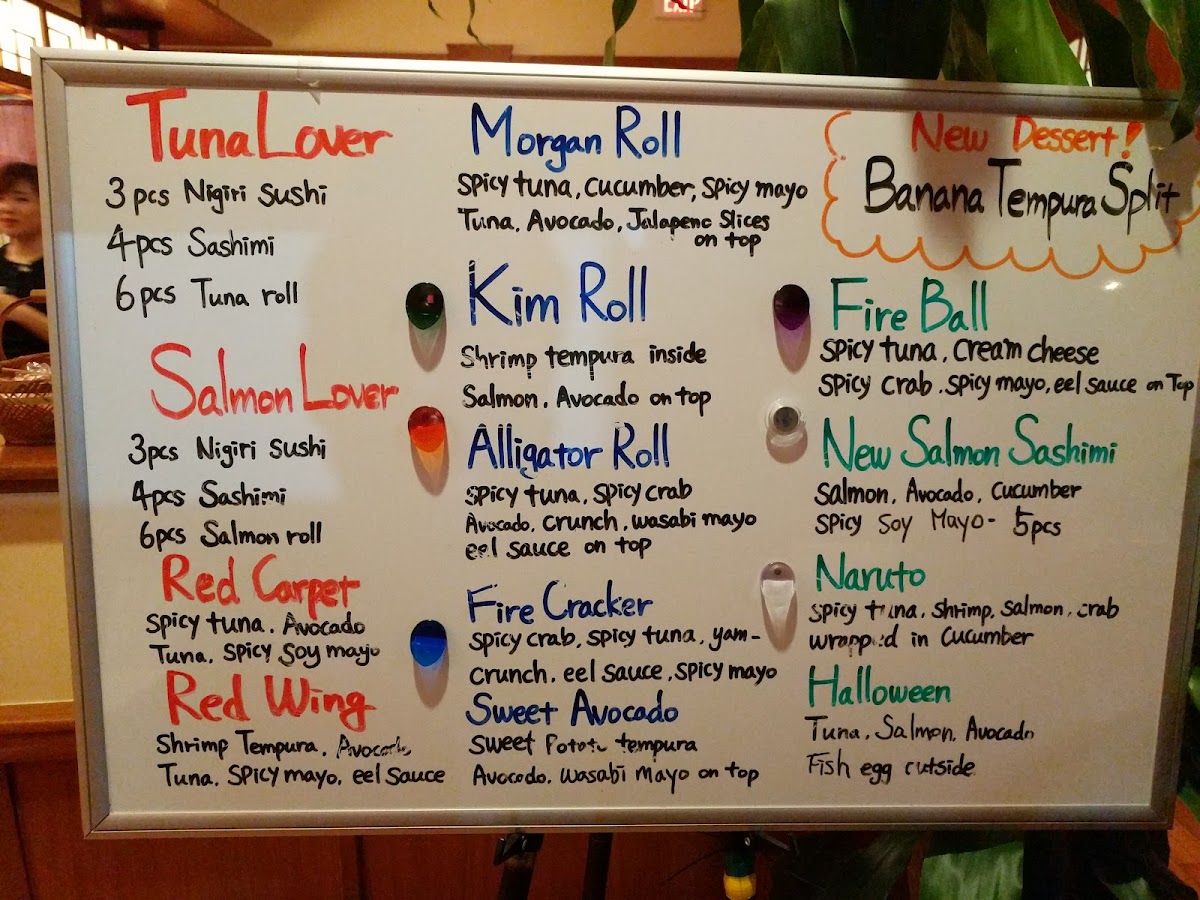 EXIT
Tuna Lover
3 pcs Nigiri sushi
4 pcs Sashimi
6 pcs Tuna roll
Salmon Lover
3pcs Nigiri sushi
4pcs Sashimi
6pcs Salmon roll
Red Carpet
spicy tuna, Avocado
Tuna, spicy soy mayo
Red Wing
Shrimp Tempura, Avocado
Tuna, spicy mayo, eel sauce
Morgan Roll
spicy tuna, cucumber, spicy mayo
Tuna, Avocado, Jalapeno Slices
on top
Kim Roll
Shrimp tempura inside
Salmon, Avocado on top
Alligator Roll
spicy tuna, spicy crab
Avocado, crunch, wasabi mayo
eel sauce on top
Fire Cracker
spicy crab, spicy tuna, yam-
crunch, eel sauce, spicy mayo
Sweet Avocado
sweet Pototo tempura
Avocado, wasabi mayo on top
New Dessert!
Banana Tempura Split
Fire Ball
spicy tuna, cream cheese
spicy crab, spicy mayo, eel sauce on Top
New Salmon Sashimi
Salmon, Avocado, Cucumber
spicy soy Mayo - 5pcs
Naruto
spicy tuna, shrimp, salmon, crab
wrapped in cucumber
Halloween
Tuna, Salmon, Avocado
Fish egg outside